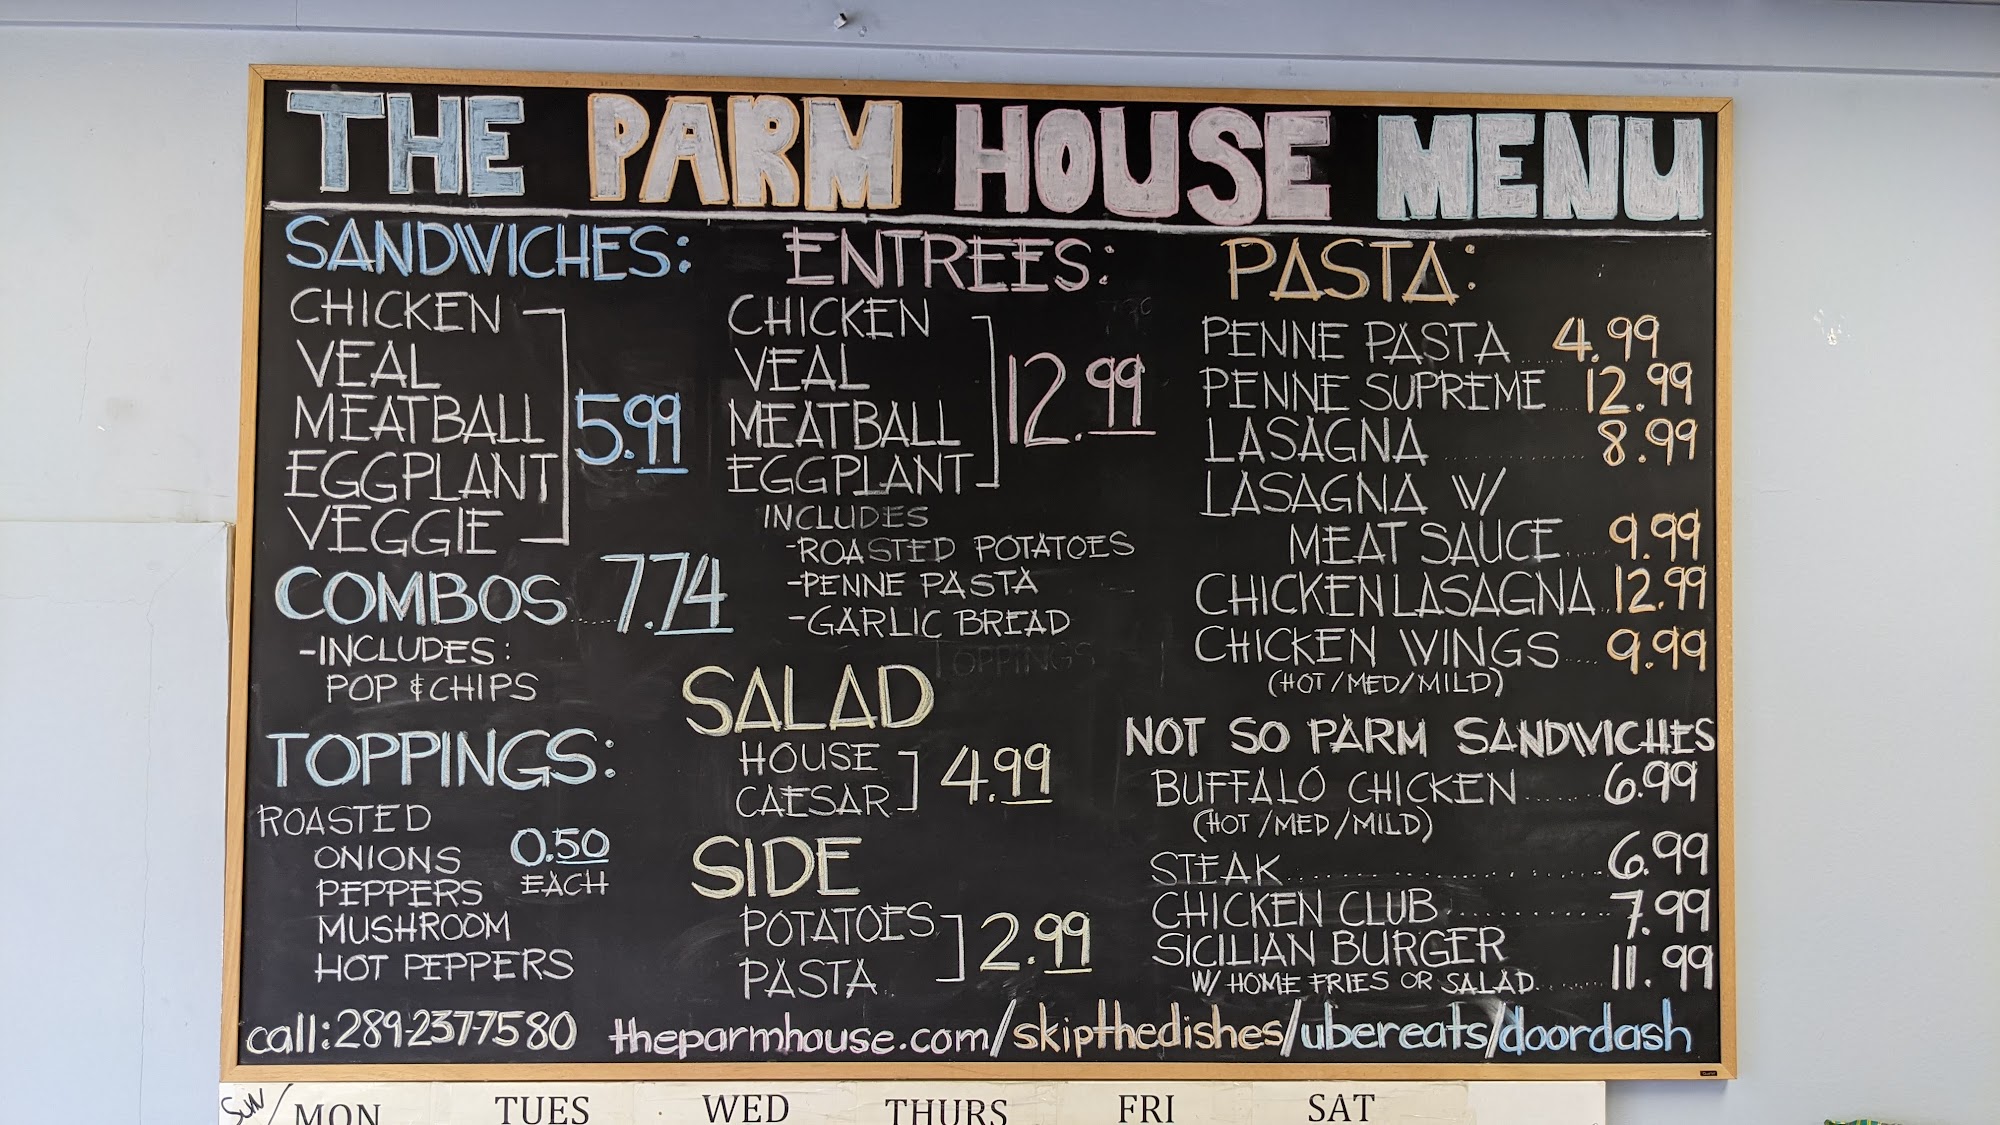 THE PARM HOUSE MENU
SANDWICHES:
CHICKEN
VEAL
MEATBALL
EGGPLANT
VEGGIE
5.99
COMBOS 7.74
-INCLUDES:
POP & CHIPS
TOPPINGS:
ROASTED
ONIONS
PEPPERS
MUSHROOM
HOT PEPPERS
0.50
EACH
ENTREES:
CHICKEN
VEAL
MEATBALL
EGGPLANT
12.99
INCLUDES
-ROASTED POTATOES
-PENNE PASTA
-GARLIC BREAD
TOPPINGS
SALAD
HOUSE
CAESAR
4.99
SIDE
POTATOES
PASTA
2.99
PASTA:
PENNE PASTA 4.99
PENNE SUPREME 12.99
LASAGNA 8.99
LASAGNA W/
MEAT SAUCE 9.99
CHICKEN LASAGNA 12.99
CHICKEN WINGS 9.99
(HOT/MED/MILD)
NOT SO PARM SANDWICHES
BUFFALO CHICKEN 6.99
(HOT/MED/MILD)
STEAK 6.99
CHICKEN CLUB 7.99
SICILIAN BURGER
W/ HOME FRIES OR SALAD 11.99
call: 289-237-7580 theparmhouse.com/skipthedishes/ubereats/doordash
SUN/MON TUES WED THURS FRI SAT